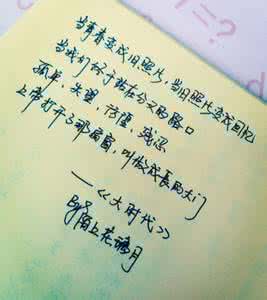 当青春变成旧照片,当旧照片变成回忆
当我们终于站在分叉的路口
孤单,失望,彷徨,残忍
上帝打开了那扇窗,叫做成长的大门
——《大时代》
By:
陌上花语月